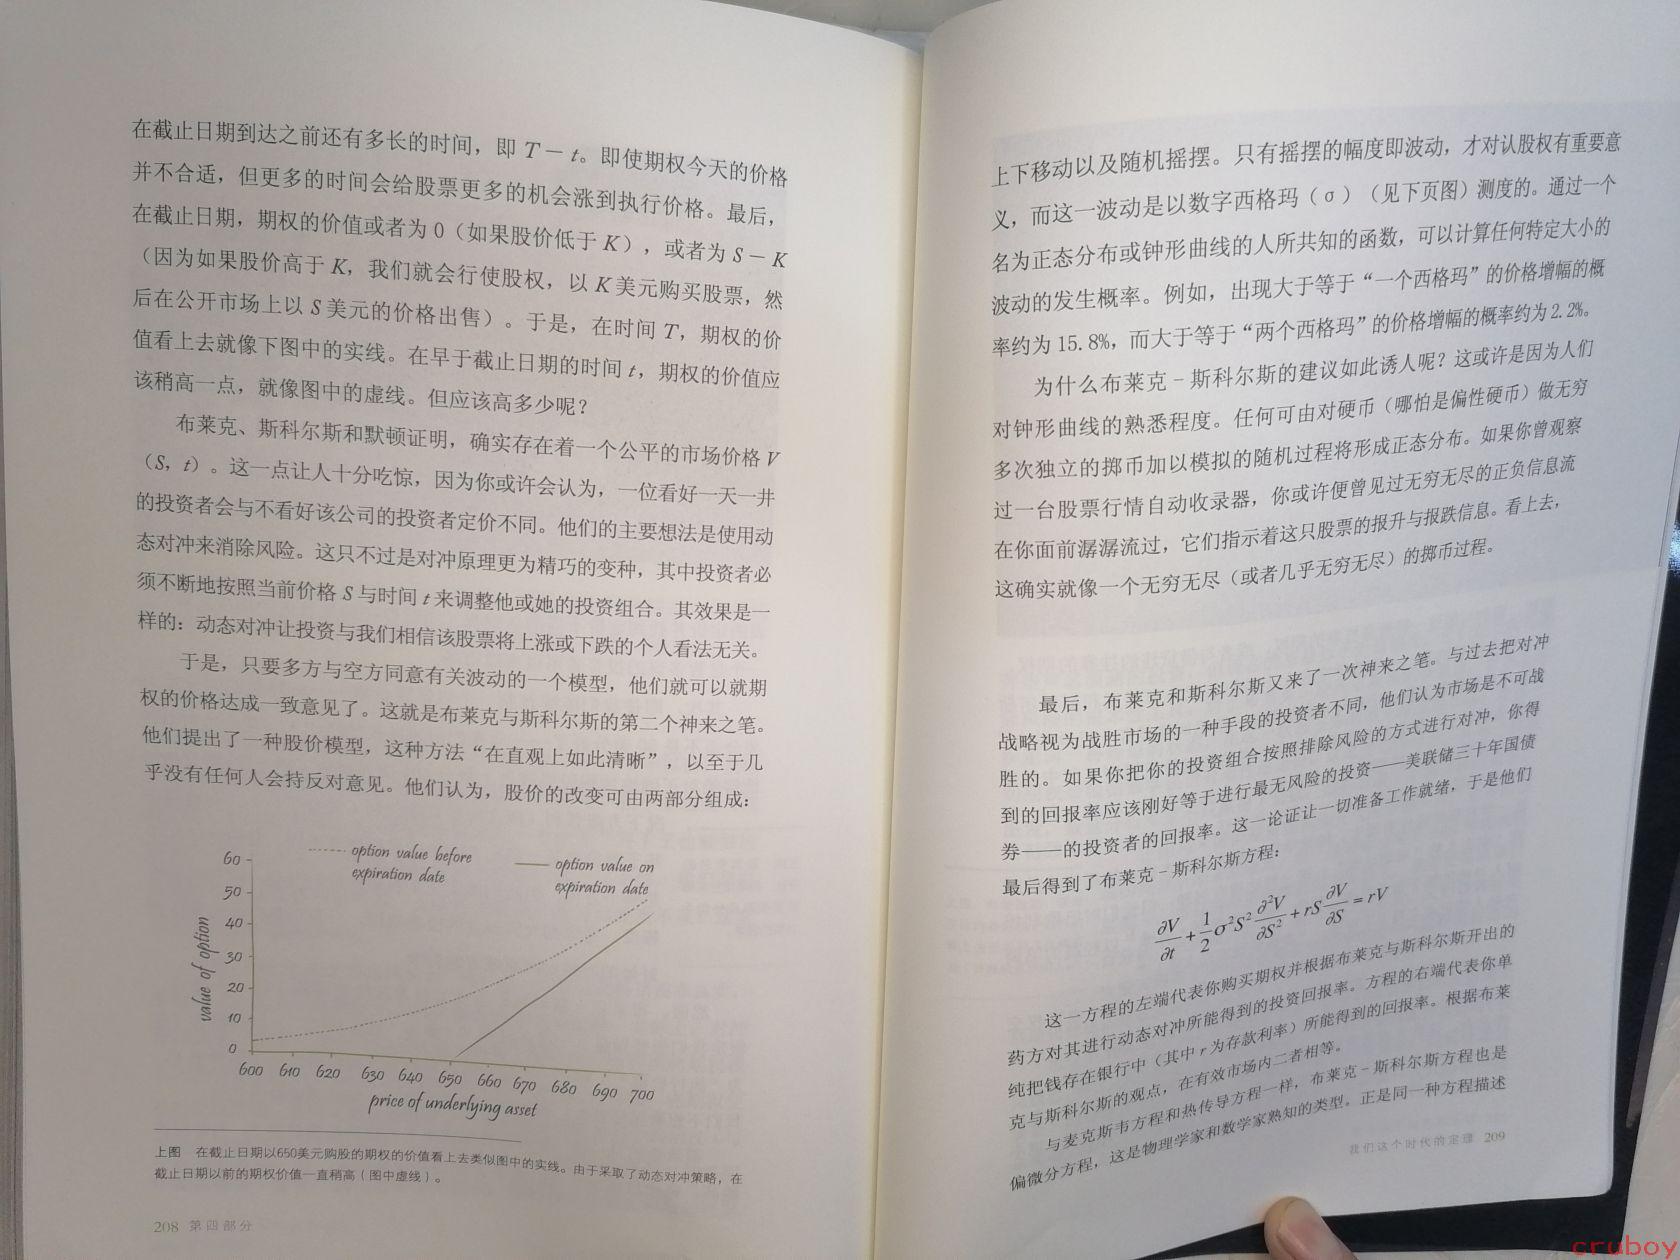 在截止日期到达之前还有多长的时间，即 T － t。即使期权今天的价格
并不合适，但更多的时间会给股票更多的机会涨到执行价格。最后，
在截止日期，期权的价值或者为 0（如果股价低于 K），或者为 S － K
（因为如果股价高于 K，我们就会行使股权，以 K 美元购买股票，然
后在公开市场上以 S 美元的价格出售）。于是，在时间 T，期权的价
值看上去就像下图中的实线。在早于截止日期的时间 t，期权的价值应
该稍高一点，就像图中的虚线。但应该高多少呢？
布莱克、斯科尔斯和默顿证明，确实存在着一个公平的市场价格 V
（S，t）。这一点让人十分吃惊，因为你或许会认为，一位看好一天一井
的投资者会与不看好该公司的投资者定价不同。他们的主要想法是使用动
态对冲来消除风险。这只不过是对冲原理更为精巧的变种，其中投资者必
须不断地按照当前价格 S 与时间 t 来调整他或她的投资组合。其效果是一
样的：动态对冲让投资与我们相信该股票将上涨或下跌的个人看法无关。
于是，只要多方与空方同意有关波动的一个模型，他们就可以就期
权的价格达成一致意见了。这就是布莱克与斯科尔斯的第二个神来之笔。
他们提出了一种股价模型，这种方法“在直观上如此清晰”，以至于几
乎没有任何人会持反对意见。他们认为，股价的改变可由两部分组成：
option value before
expiration date
option value on
expiration date
value of option
60
50
40
30
20
10
0
600 610 620 630 640 650 660 670 680 690 700
price of underlying asset
上图 在截止日期以650美元购股的期权的价值看上去类似图中的实线。由于采取了动态对冲策略，在
截止日期以前的期权价值一直稍高（图中虚线）。
208 第四部分
上下移动以及随机摇摆。只有摇摆的幅度即波动，才对认股权有重要意
义，而这一波动是以数字西格玛（σ）（见下页图）测度的。通过一个
名为正态分布或钟形曲线的人所共知的函数，可以计算任何特定大小的
波动的发生概率。例如，出现大于等于“一个西格玛”的价格增幅的概
率约为 15.8%，而大于等于“两个西格玛”的价格增幅的概率约为 2.2%。
为什么布莱克－斯科尔斯的建议如此诱人呢？这或许是因为人们
对钟形曲线的熟悉程度。任何可由对硬币（哪怕是偏性硬币）做无穷
多次独立的掷币加以模拟的随机过程将形成正态分布。如果你曾观察
过一台股票行情自动收录器，你或许便曾见过无穷无尽的正负信息流
在你面前潺潺流过，它们指示着这只股票的报升与报跌信息。看上去，
这确实就像一个无穷无尽（或者几乎无穷无尽）的掷币过程。
最后，布莱克和斯科尔斯又来了一次神来之笔。与过去把对冲
战略视为战胜市场的一种手段的投资者不同，他们认为市场是不可战
胜的。如果你把你的投资组合按照排除风险的方式进行对冲，你得
到的回报率应该刚好等于进行最无风险的投资——美联储三十年国债
券——的投资者的回报率。这一论证让一切准备工作就绪，于是他们
最后得到了布莱克－斯科尔斯方程：
∂V/∂t + 1/2 σ²S² ∂²V/∂S² + rS ∂V/∂S = rV
这一方程的左端代表你购买期权并根据布莱克与斯科尔斯开出的
药方对其进行动态对冲所能得到的投资回报率。方程的右端代表你单
纯把钱存在银行中（其中 r 为存款利率）所能得到的回报率。根据布莱
克与斯科尔斯的观点，在有效市场内二者相等。
与麦克斯韦方程和热传导方程一样，布莱克－斯科尔斯方程也是
偏微分方程，这是物理学家和数学家熟知的类型。正是同一种方程描述
我们这个时代的定理 209
cruboy